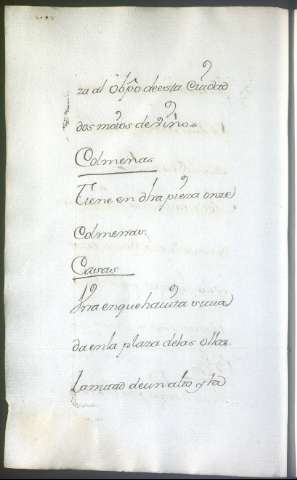 za al Obpo de esta Ciudad
dos maios de viños
Colmenas
Tiene en dha pieza onze
Colmenas
Casas
Una en que havita situa
da en la plaza de las ollas
la mitad de un alto y sta